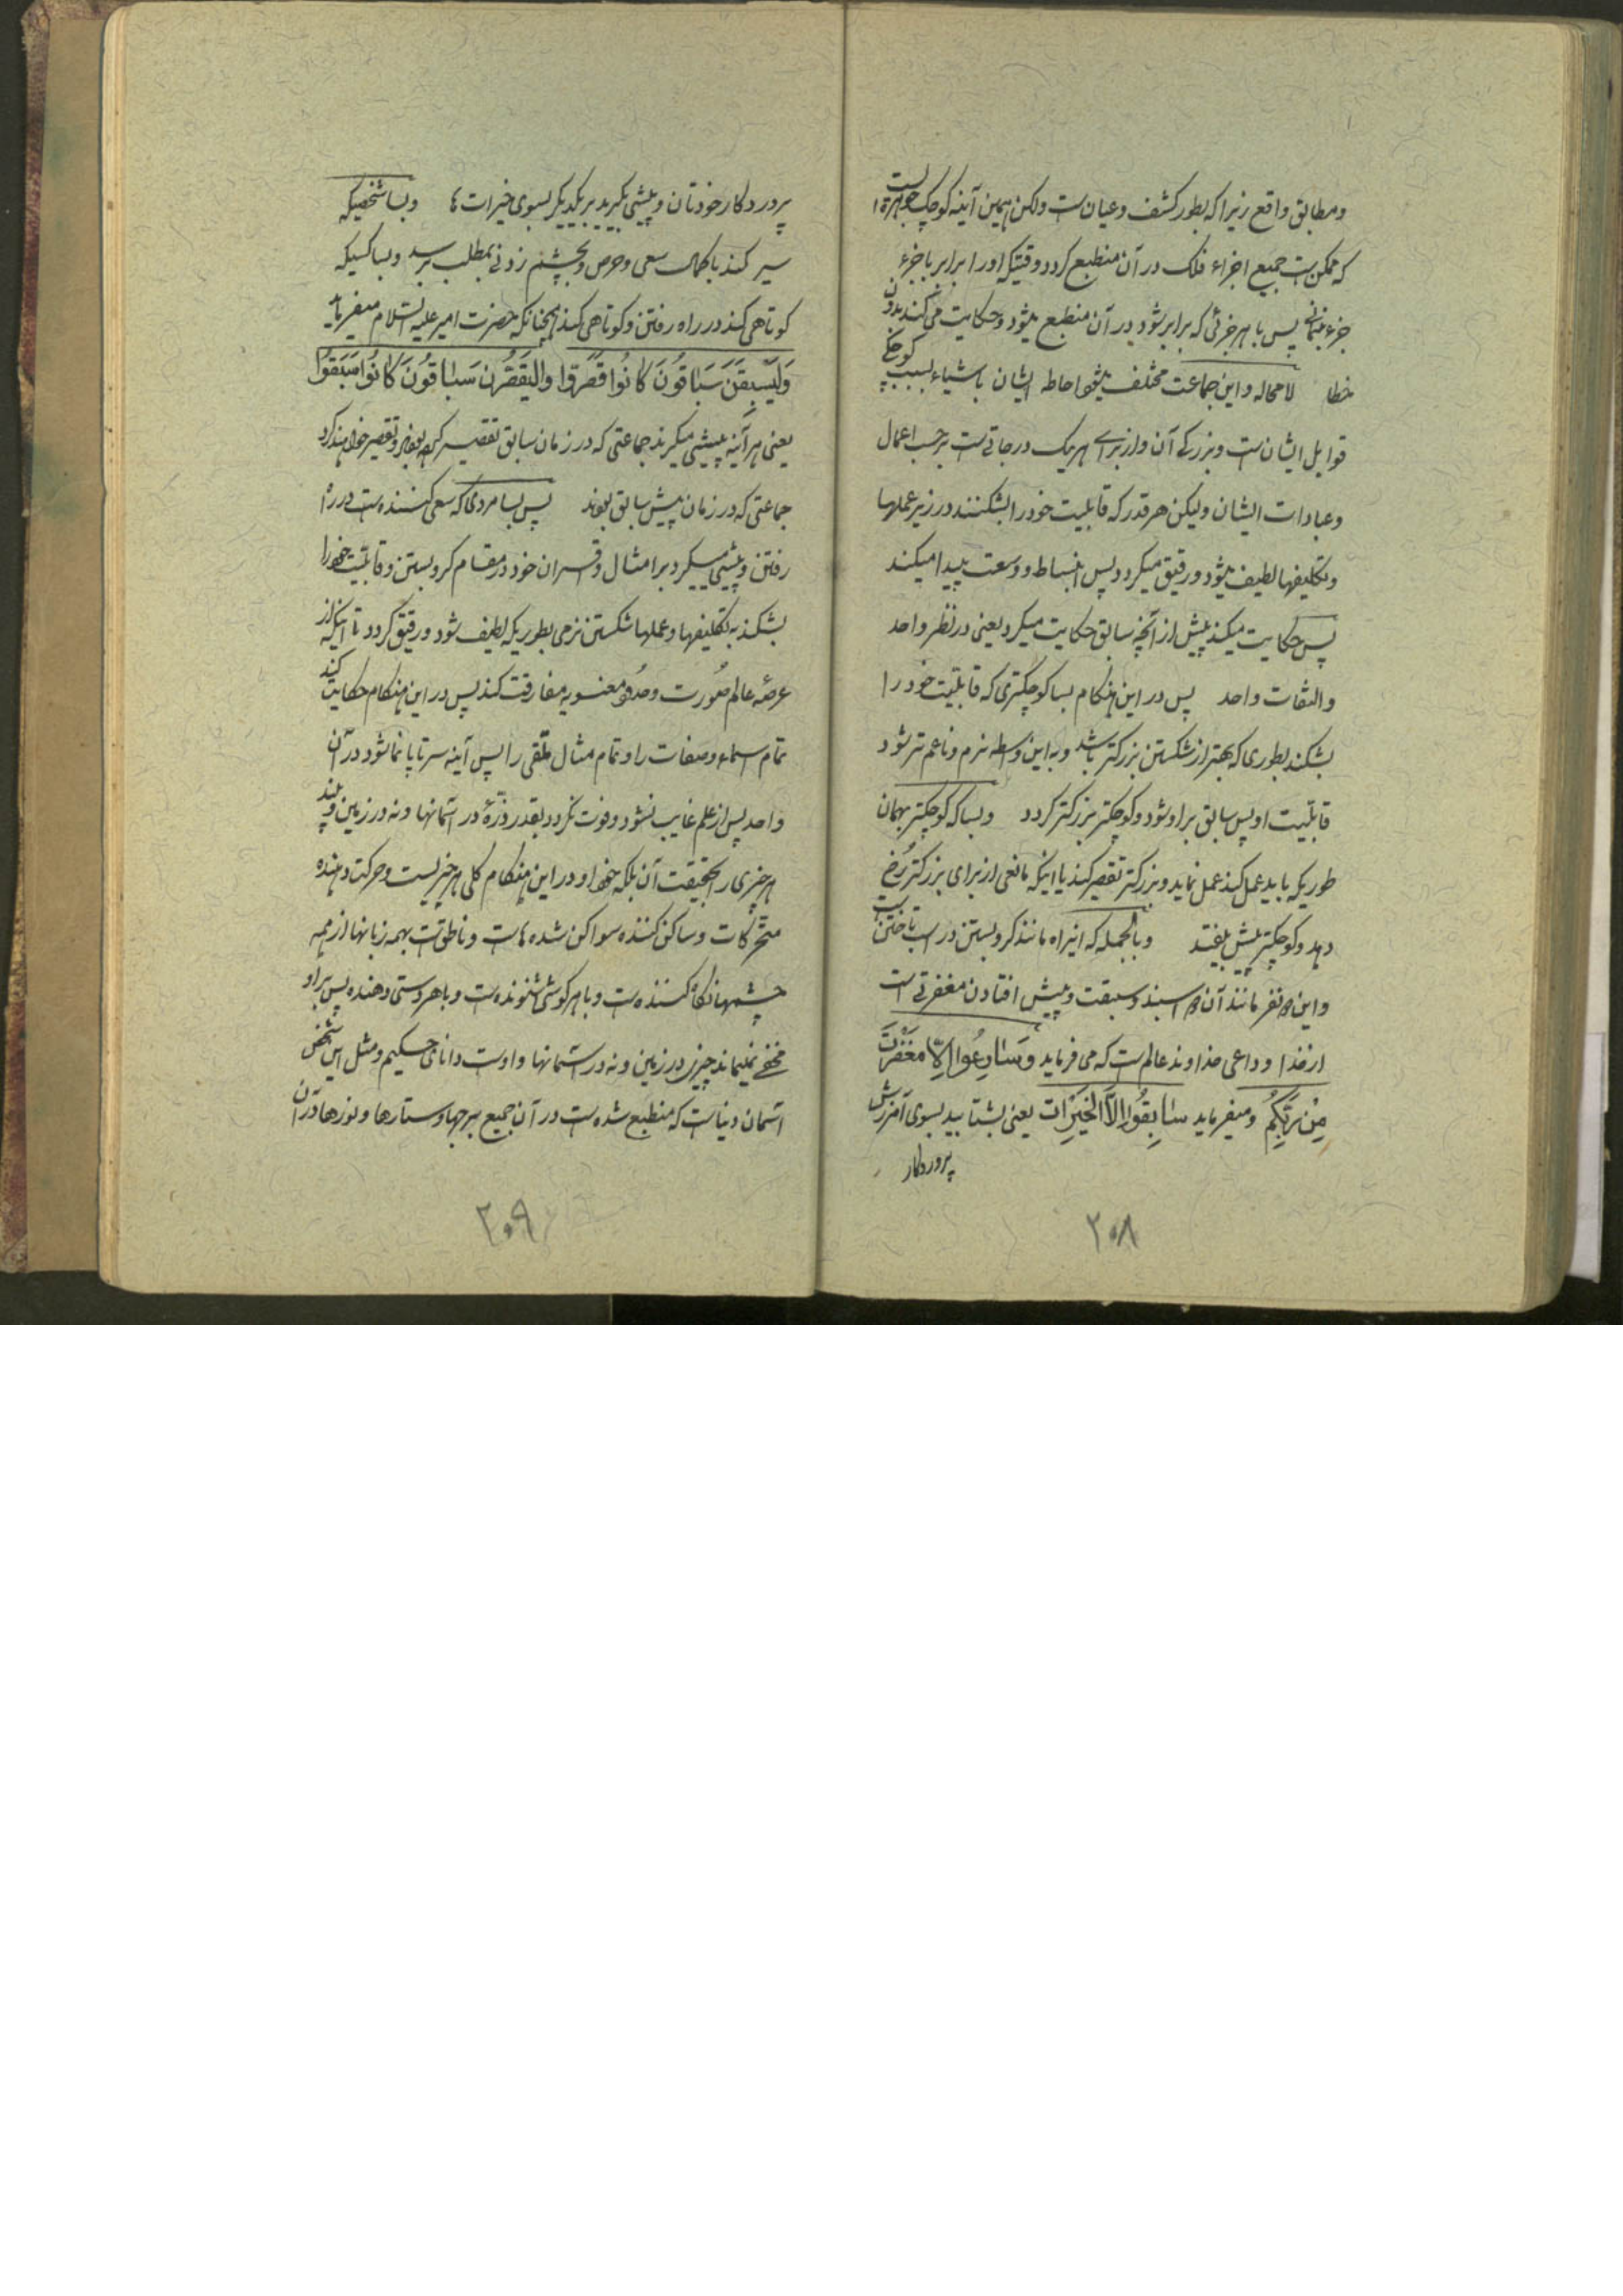 ومطابق واقع زیرا که بطور کشف و عیان است ولکن همین آینه کوچک جواهریست
که ممکن است جمیع اجزاء فلک در آن منطبع گردد وقتیکه اورا برابر با جزء
جزء نمائی پس با هر جزئی که برابر شود در آن منطبع میشود و حکایت می کند بدون
خطا لا محاله و این جماعت مختلف میشود احاطه ایشان باشیاء بسبب کوچکی
قوابل ایشان است و بزرگی آن و از برای هر یک درجاتی است بر حسب اعمال
وعبادات ایشان ولیکن هر قدر که قابلیت خود را بشکنند در زیر عملها
وتکلیفها لطیف میشود و رقیق میگردد پس انبساط و وسعت پیدا میکند
پس حکایت میکند پیش از آنچه سابق حکایت میکرد یعنی در نظر واحد
والتفات واحد پس در این هنگام بسا کوچکتری که قابلیت خود را
بشکند بطوری که بهتر از شکستن بزرگتر باشد و به این واسطه نرم و ناعم تر شود
قابلیت او پس سابق بر او شود و کوچکتر بزرگتر گردد وبسا که کوچکتر بهمان
طوریکه باید عمل کند عمل نماید و بزرگتر تقصیر کند یا اینکه مانعی از برای بزرگتر رخ
دهد و کوچکتر پیش بیفتد وبالجمله که اینراه مانند گرو بستن در اسب تاختن
واین نفر مانند آن اسبند و سبقت و پیش افتادن مغفرتی است
از خدا و داعی خداوند عالم است که می فرماید وَسَارِعُوا اِلَی مَغْفِرَتٍ
مِنْ رَبِّکُمْ ومیفرماید سَابِقُوا اِلَی الْخَیْرَات یعنی بشتابید بسوی آمرزش
پروردگار
۲۰۸
پروردگار خودتان و پیشی بگیرید بر یکدیگر بسوی خیرات ها وبسا شخصیکه
سیر کند با کمال سعی و حرص و بچشم زدنی بمطلب برسد و بسا کسیکه
کوتاهی کند در راه رفتن و کوتاهی کند همچنانکه حضرت امیر علیه السلام میفرماید
وَلَیَسْبِقَنَّ سَبَّاقُونَ کَانُوا قَصَّرُوا وَلَیُقَصِّرَنَّ سَبَّاقُونَ کَانُوا سَبَقُوا
یعنی هر آینه پیشی میگیرند جماعتی که در زمان سابق تقصیر کرده بودند و تقصیر خواهند کرد
جماعتی که در زمان پیش سابق بودند پس بسا مردی که سعی کننده است در راه
رفتن و پیشی میگیرد بر امثال و اقران خود در مقام گرو بستن و قابلیت خود را
بشکند به تکلیفها و عملها شکستن نرمی بطوریکه لطیف شود و رقیق گردد تا اینکه از
عرصه عالم صورت و حدود معنویه مفارقت کند پس در این هنگام حکایت کند
تمام اسماء و صفات را و تمام مثال ملقی را پس آینه سرتا پا نما شود در آن
واحد پس از علم غایب نشود و فوت نگردد بقدر ذرّهٔ در آسمانها و نه در زمین و بیند
هر چیزی را بحقیقت آن بلکه خود او در این هنگام کلی هر چیزیست و حرکت دهنده
متحرکات و ساکن کننده سواکن شده است و ناطق است بهمه زبانها از همه
چشمها نگاه کننده است و با هر گوشی شنونده است و با هر دستی دهنده پس بر او
مخفی نمیماند چیزی در زمین و نه در آسمانها و اوست دانای حکیم و مثل این شخص
آسمان دنیاست که منطبع شده است در آن جمیع برجها و ستارها و نورها در آن
۲۰۹